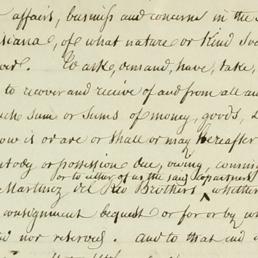 affairs, business and concerns in the
siana, of what nature or kind soe
ver. To ask, demand, have, take,
to recover and receive of and from all and
such sum or sums of money, goods,
now is or are or shall or may hereafter
tody or possession due, owing,
or to either of us the said copartners
Martinez del Rio Brothers whether
consignment bequest or for or by wh
nor reserved. and to that end